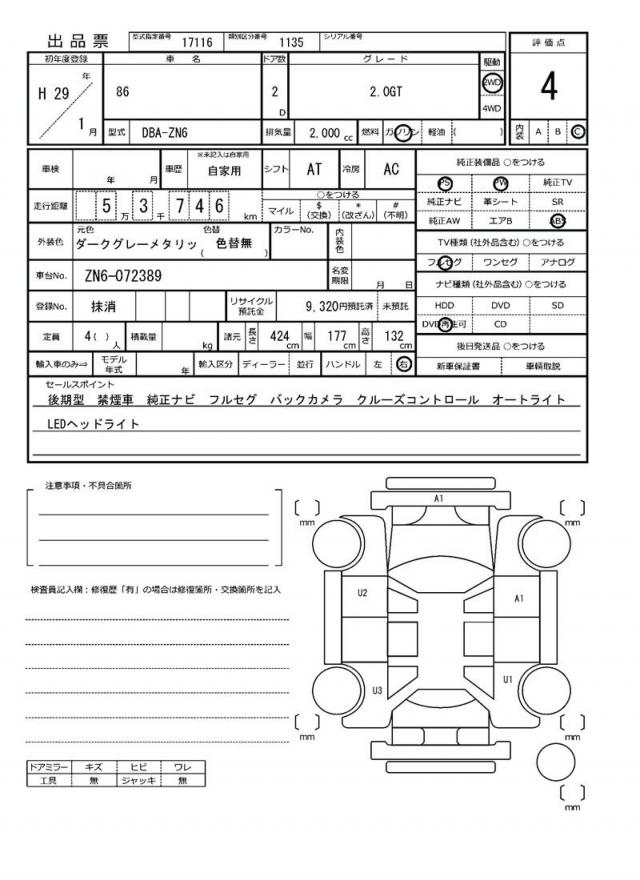 出品票 型式指定番号 17116 類別区分番号 1135 シリアル番号
初年度登録 車名 ドア数 グレード 駆動 評価点
H 29 年 86 2 D 2.0GT 2WD 4WD 4
1 月 型式 DBA-ZN6 排気量 2,000 cc 燃料 ガソリン 軽油 ( ) 内装 A B C
車検 年 月 車歴 ※未記入は自家用 自家用 シフト AT 冷房 AC 純正装備品 ○をつける
PS PW 純正TV
走行距離 5 万 3 千 7 4 6 km ○をつける マイル $ (交換) * (改ざん) # (不明) 純正ナビ 革シート SR
純正AW エアB ABS
外装色 元色 ダークグレーメタリッ 色替 ( 色替無 ) カラーNo. 内装色 TV種類 (社外品含む) ○をつける
フルセグ ワンセグ アナログ
車台No. ZN6-072389 名変期限 月 日 ナビ種類 (社外品含む) ○をつける
登録No. 抹消 リサイクル預託金 9,320円預託済 未預託 HDD DVD SD
DVD再生可 CD
定員 4 ( ) 人 積載量 kg 諸元 長さ 424 cm 幅 177 cm 高さ 132 cm 後日発送品 ○をつける
輸入車のみ⇒ モデル年式 年 輸入区分 ディーラー 並行 ハンドル 左 右 新車保証書 車輌取説
セールスポイント
後期型 禁煙車 純正ナビ フルセグ バックカメラ クルーズコントロール オートライト
LEDヘッドライト
注意事項・不具合箇所
A1
mm mm
検査員記入欄：修復歴「有」の場合は修復箇所・交換箇所を記入
U2 A1
U3 U1
mm mm
ドアミラー キズ ヒビ ワレ
工具 無 ジャッキ 無
mm